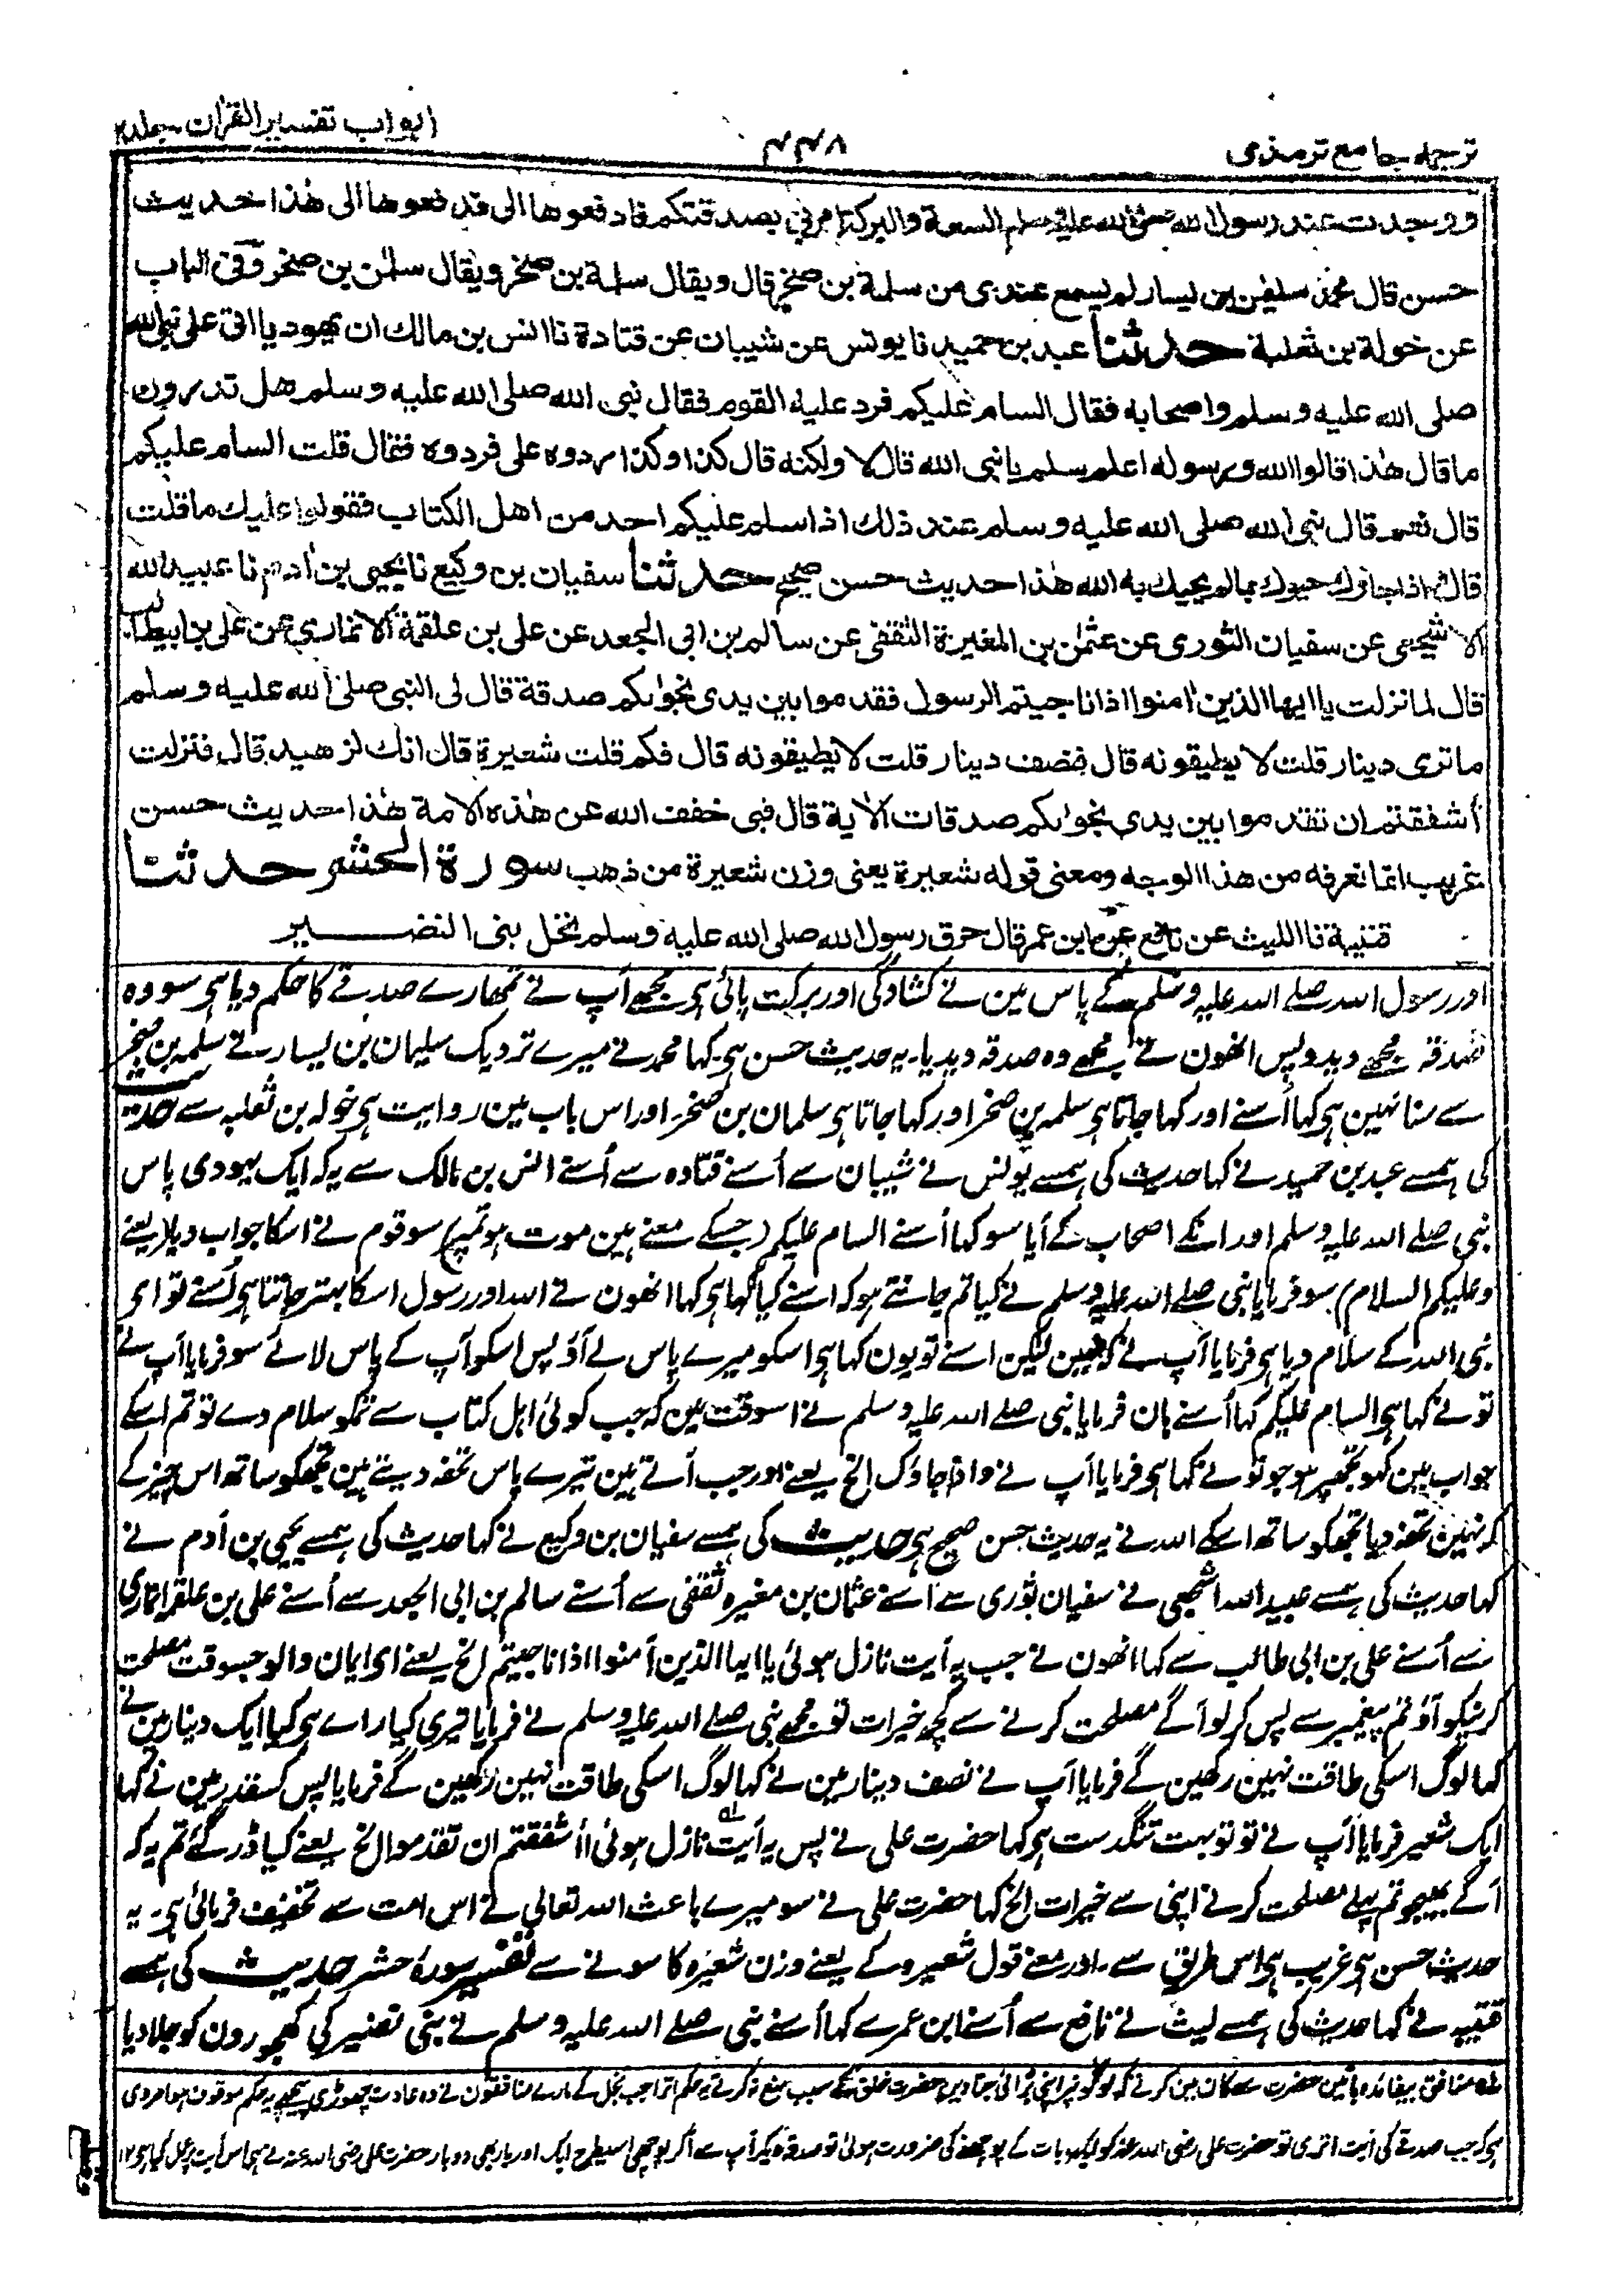 ترجمہ جامع ترمذی
۴۴۸
ابواب تفسیر القرآن جلد۲
ووجدت عند رسول الله صلى الله عليه وسلم السعة والبركة امرنى بصدقتكم فادفعوها الى فدفعوها الى هذا حديث
حسن قال محمد سليمن بن يسار لم يسمع عندى من سلمة بن صخر قال ويقال سلمة بن صخر ويقال سلمٰن بن صخر وفى الباب
عن خولة بن ثعلبة حدثنا عبد بن حميد نا يونس عن شيبان عن قتادة نا انس بن مالك ان يهوديا اتى على نبى الله
صلى الله عليه وسلم واصحابه فقال السام عليكم فرد عليه القوم فقال نبى الله صلى الله عليه وسلم هل تدرون
ما قال هذا قالوا الله ورسوله اعلم سلم يا نبى الله قال لا ولكنه قال كذا وكذا ردوه على فردوه فقال قلت السام عليكم
قال نعم قال نبى الله صلى الله عليه وسلم عند ذلك اذا سلم عليكم احد من اهل الكتاب فقولوا عليك ما قلت
قال واذا جاؤك حيوك بما لم يحيك به الله هذا حديث حسن صحيح حدثنا سفيان بن وكيع نا يحيى بن آدم نا عبيد الله
الاشجعى عن سفيان الثورى عن عثمٰن بن المغيرة الثقفى عن سالم بن ابى الجعد عن على بن علقمة الانمارى عن على بن ابيطالب
قال لما نزلت يا ايها الذين اٰمنوا اذا ناجيتم الرسول فقدموا بين يدى نجوٰىكم صدقة قال لى النبى صلى الله عليه وسلم
ما ترى دينار قلت لا يطيقونه قال فنصف دينار قلت لا يطيقونه قال فكم قلت شعيرة قال انك لزهيد قال فنزلت
أشفقتم ان تقدموا بين يدى نجوٰىكم صدقات الاٰية قال فبى خفف الله عن هذه الامة هذا حديث حسن
غريب انما نعرفه من هذا الوجه ومعنى قوله شعيرة يعنى وزن شعيرة من ذهب سورة الحشر حدثنا
قتيبة نا الليث عن نافع عن ابن عمر قال حرق رسول الله صلى الله عليه وسلم نخل بنى النضير
اور رسول اللہ صلے اللہ علیہ وسلم کے پاس مین نے کشادگی اور برکت پائی ہی مجھے آپ نے تمھارے صدقے کا حکم دیا ہی سو وہ
صدقہ مجھے دیدو پس انھون نے مجھے وہ صدقہ دیدیا۔ یہ حدیث حسن ہی۔ کہا محمد نے میرے نزدیک سلیمان بن یسار نے سلمہ بن صخر
سے سنا نہین ہی کہا اُسنے اور کہا جاتا ہی سلمہ بن صخر اور کہا جاتا ہی سلمان بن صخر اور اس باب مین روایت ہی خولہ بن ثعلبہ سے حدیث
کی ہمسے عبد بن حمید نے کہا حدیث کی ہمسے یونس نے شیبان سے اُسنے قتادہ سے اُسنے انس بن مالک سے یہ کہ ایک یہودی پاس
نبی صلے اللہ علیہ وسلم اور انکے اصحاب کے آیا سو کہا اُسنے السام علیکم (جسکے معنے ہین موت ہو تمپر) سو قوم نے اسکا جواب دیا (یعنے
وعلیکم السلام) سو فرمایا نبی صلے اللہ علیہ وسلم نے کیا تم جانتے ہو کہ اسنے کیا کہا ہی کہا انھون نے اللہ اور رسول اسکا بہتر جانتا ہی اُسنے تو ای
نبی اللہ کے سلام دیا ہی فرمایا آپ نے کہ نہین لیکن اسنے تو یون کہا ہی اسکو میرے پاس لے آؤ پس اسکو آپ کے پاس لائے سو فرمایا آپ نے
تو نے کہا ہی السام علیکم کہا اُسنے ہان فرمایا نبی صلے اللہ علیہ وسلم نے اسوقت مین کہ جب کوئی اہل کتاب سے تمکو سلام دے تو تم اسکے
جواب مین کہو تجھپر ہو جو تو نے کہا ہی فرمایا آپ نے واذا جاؤک الخ یعنے اور جب آتے ہین تیرے پاس تحفہ دیتے ہین تجھکو ساتھ اس چیز کے
کہ نہین تحفہ دیا تجھکو ساتھ اسکے اللہ نے یہ حدیث حسن صحیح ہی حدیث کی ہمسے سفیان بن وکیع نے کہا حدیث کی ہمسے یحیی بن آدم نے
کہا حدیث کی ہمسے عبید اللہ اشجعی نے سفیان ثوری سے اُسنے عثمان بن مغیرہ ثقفی سے اُسنے سالم بن ابی الجعد سے اُسنے علی بن علقمہ انماری
سے اُسنے علی بن ابی طالب سے کہا انھون نے جب یہ آیت نازل ہوئی یا ایہا الذین آمنوا اذا ناجیتم الخ یعنے ای ایمان والو جسوقت مصلحت
کرنیکو آؤ تم پیغمبر سے پس کر لو آگے مصلحت کرنے سے کچھ خیرات تو مجھے نبی صلے اللہ علیہ وسلم نے فرمایا تیری کیا راے ہی کیا ایک دینار مین نے
کہا لوگ اسکی طاقت نہین رکھین گے فرمایا آپ نے نصف دینار مین نے کہا لوگ اسکی طاقت نہین رکھین گے فرمایا پس کسقدر مین نے کہا
ایک شعیر فرمایا آپ نے تو تو بہت تنگدست ہی کہا حضرت علی نے پس یہ آیت نازل ہوئی أأشفقتم ان تقدموا الخ یعنے کیا ڈر گئے تم یہ کہ
آگے بھیجو تم پہلے مصلحت کرنے اپنی سے خیرات الخ کہا حضرت علی نے سو میرے باعث اللہ تعالی نے اس امت سے تخفیف فرمائی ہی۔ یہ
حدیث حسن ہی غریب ہی اس طریق سے۔ اور معنے قول شعیرہ کے یعنے وزن شعیرہ کا سونے سے تفسیر سورۂ حشر حدیث کی ہمسے
قتیبہ نے کہا حدیث کی ہمسے لیث نے نافع سے اُسنے ابن عمر سے کہا اُسنے نبی صلے اللہ علیہ وسلم نے بنی نضیر کی کھجورون کو جلا دیا
منافق بیفائدہ باتین حضرت سے کان مین کرتے کہ لوگونپر اپنی بڑائی جتاوین حضرت خلق کے سبب منع نہ کرتے یہ حکم اترا جب بخل کے مارے منافقون نے وہ عادت چھوڑی پیچھے یہ حکم موقوف ہوا مروی
ہی کہ جب صدقے کی آیت اتری تو حضرت علی رضی اللہ عنہ کو ایک بات کے پوچھنے کی ضرورت ہوئی تو صدقہ دیکر آپ سے آکر پوچھی اسیطرح ایک اور بار بھی دو بار حضرت علی رضی اللہ عنہ نے ہی اس آیت پر عمل کیا ہی ۱۲